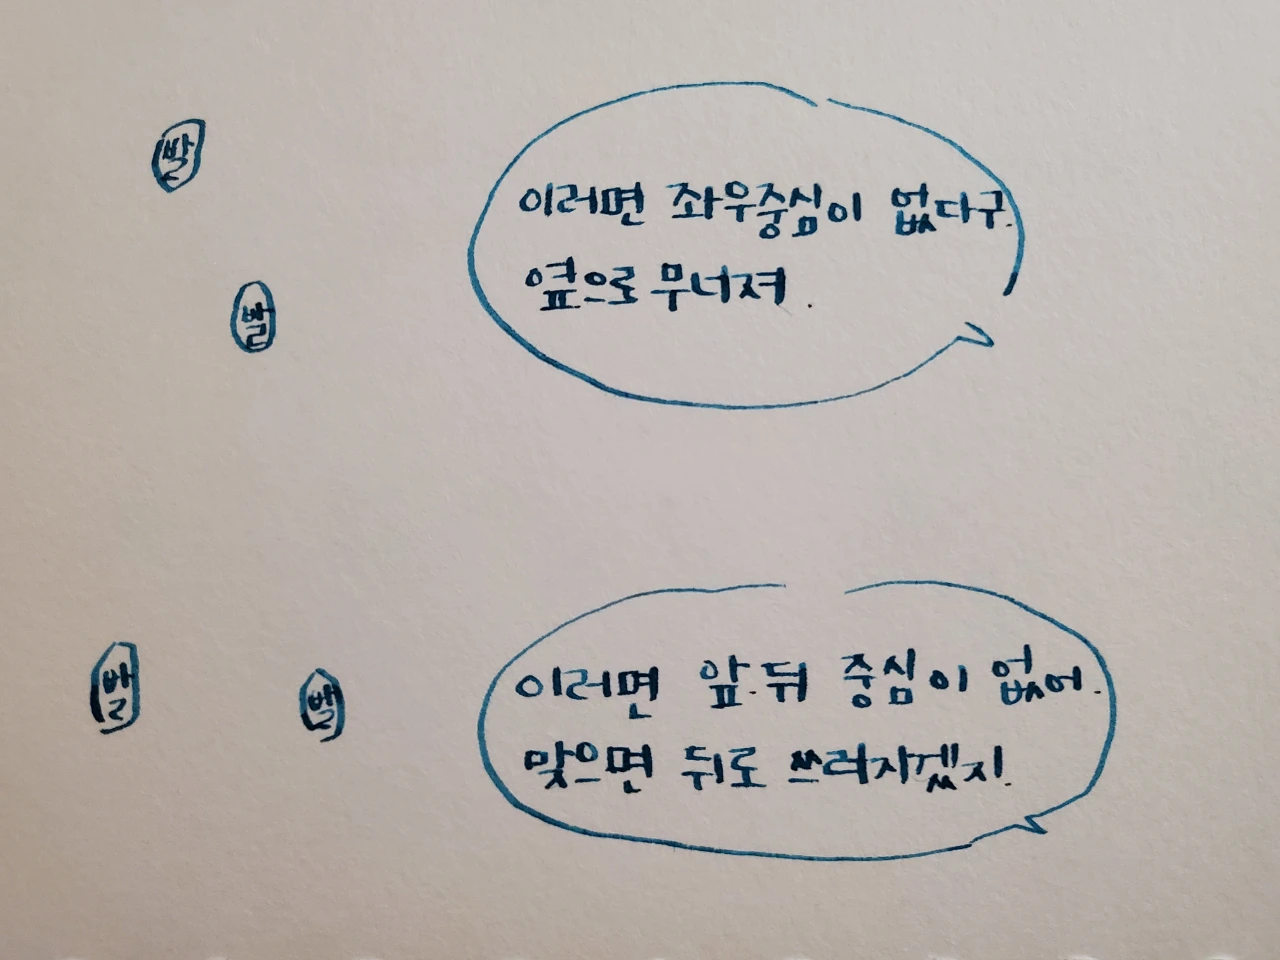 발
이러면 좌우중심이 없다구.
옆으로 무너져.
발
이러면 앞.뒤 중심이 없어.
맞으면 뒤로 쓰러지겠지.
발
발